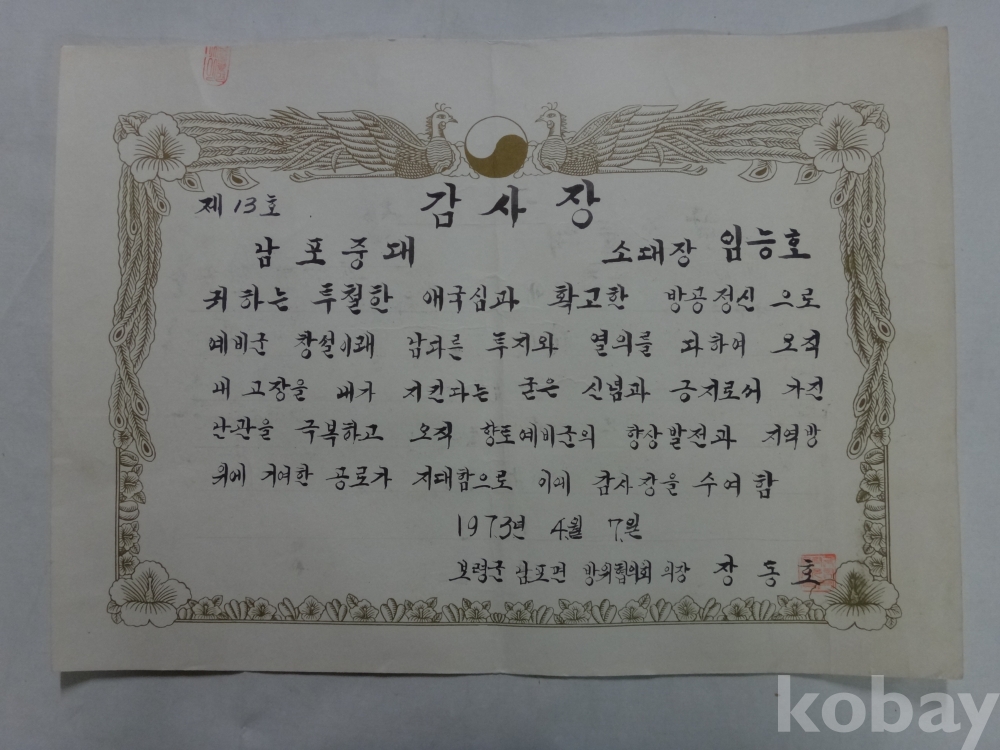 감사장
제 13호
남포중대 소대장 임능호
귀하는 투철한 애국심과 확고한 방공정신으로
예비군 창설이래 남다른 투지와 열의를 다하여 오직
내 고장을 내가 지킨다는 굳은 신념과 긍지로써 가진
난관을 극복하고 오직 향토예비군의 향상발전과 지역방
위에 기여한 공로가 지대함으로 이에 감사장을 수여함
1973년 4월 7일
보령군 남포면 방위협의회 의장 장동호
kobay